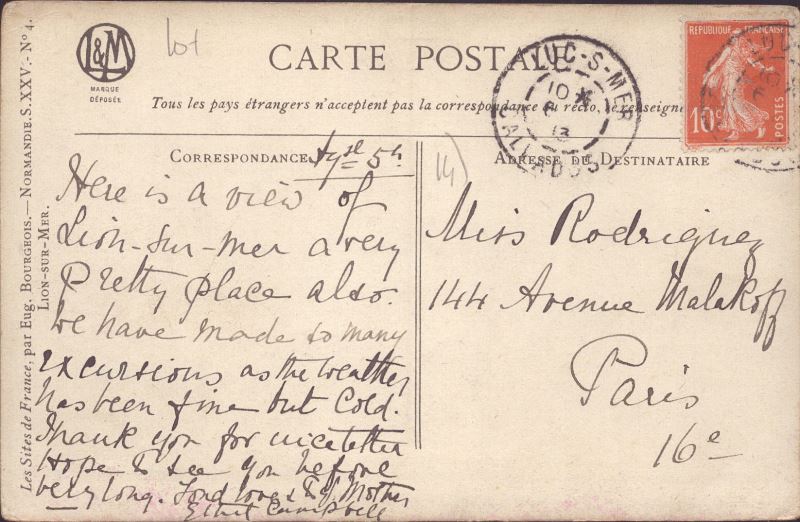 L&M
MARQUE
DÉPOSÉE
lot
CARTE POSTALE
Tous les pays étrangers n'acceptent pas la correspondance au recto, se renseigner
LUC-S-MER
10
13
CALVADOS
RÉPUBLIQUE FRANÇAISE
10c
POSTES
Les Sites de France, par Eug. BOURGEOIS.—NORMANDIE, S. XXV.- N° 4.
LION-SUR-MER.
CORRESPONDANCE
Agst 5th
Here is a view of
Lion-sur-mer a very
pretty place also.
We have made so many
excursions, as the weather
has been fine but cold.
Thank you for nice letter
Hope to see you before
very long. Fond love &
Mother
Ethel Campbell
ADRESSE DU DESTINATAIRE
Miss Rodriguez
144 Avenue Malakoff
Paris
16e